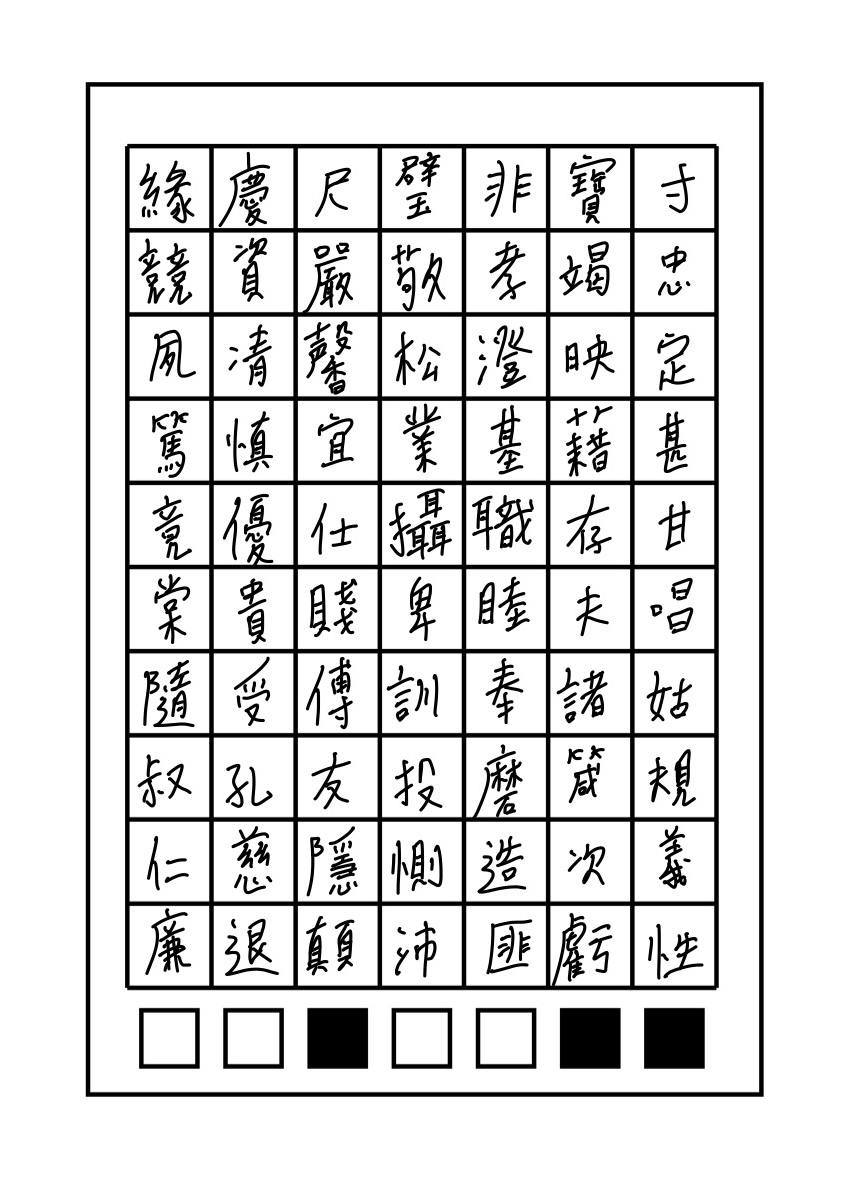 緣慶尺璧非寶寸
競資嚴敬孝竭忠
夙凊馨松澄映定
篤慎宜業基籍甚
竟優仕攝職存甘
棠貴賤卑睦夫唱
隨受傅訓奉諸姑
叔孔友投磨箴規
仁慈隱惻造次義
廉退顛沛匪虧性